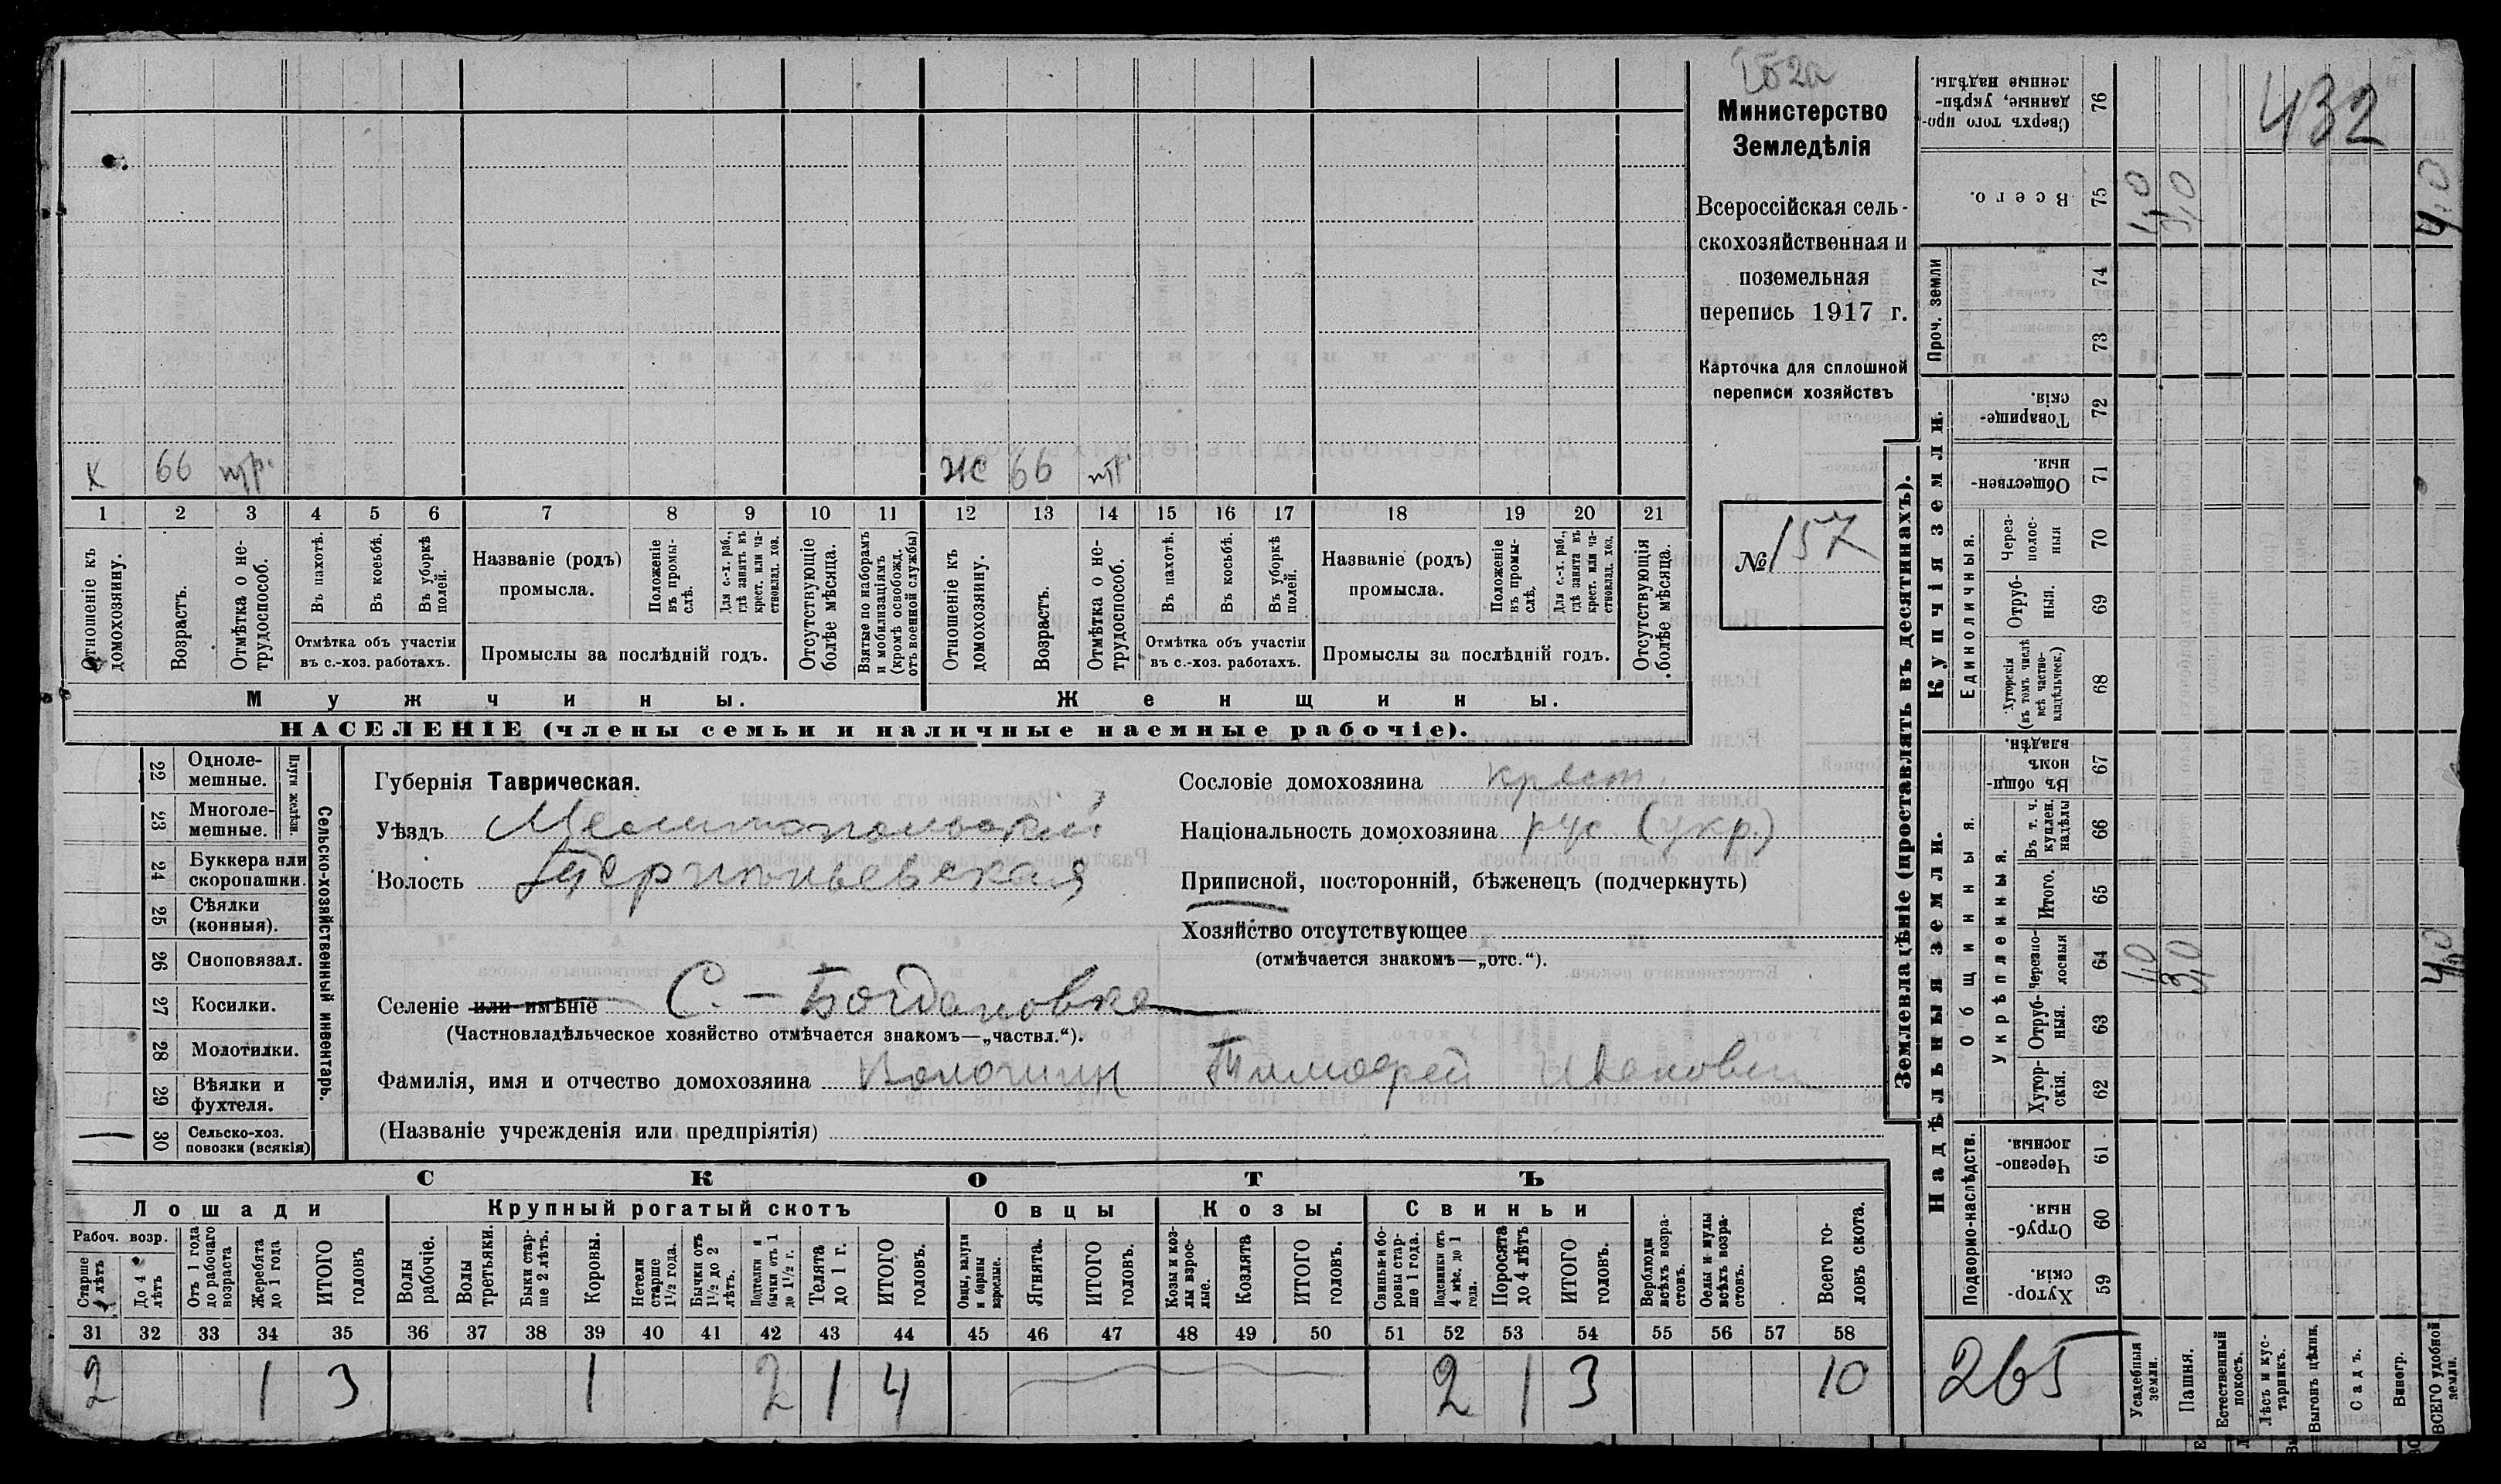 152а
Министерство
Земледѣлія
Всероссійская сель-
скохозяйственная и
поземельная
перепись 1917 г.
Карточка для сплошной
переписи хозяйствъ
№ 157
х 66 нтр. ж 66 нтр.
1 2 3 4 5 6 7 8 9 10 11 12 13 14 15 16 17 18 19 20 21
Отношеніе къ домохозяину.
Возрастъ.
Отмѣтка о не-трудоспособ.
Въ пахотѣ.
Въ косьбѣ.
Въ уборкѣ полей.
Отмѣтка объ участіи
въ с.-хоз. работахъ.
Названіе (родъ)
промысла.
Положеніе въ промы-слѣ.
Для с.-х. раб., гдѣ занятъ въ крест. или ча-стновлад. хоз.
Промыслы за послѣдній годъ.
Отсутствующіе болѣе мѣсяца.
Взятые по наборамъ и мобилизаціямъ (кромѣ освобожд. отъ военной службы)
Отношеніе къ домохозяину.
Возрастъ.
Отмѣтка о не-трудоспособ.
Въ пахотѣ.
Въ косьбѣ.
Въ уборкѣ полей.
Отмѣтка объ участіи
въ с.-хоз. работахъ.
Названіе (родъ)
промысла.
Положеніе въ промы-слѣ.
Для с.-х. раб., гдѣ занята въ крест. или ча-стновлад. хоз.
Промыслы за послѣдній годъ.
Отсутствующія болѣе мѣсяца.
Мужчины. Женщины.
НАСЕЛЕНІЕ (члены семьи и наличные наемные рабочіе).
22 Однолемешные.
23 Многолемешные.
Плуги желѣзн.
24 Буккера или скоропашки.
25 Сѣялки (конныя).
26 Сноповязал.
27 Косилки.
28 Молотилки.
29 Вѣялки и фухтеля.
30 Сельско-хоз. повозки (всякія)
Сельско-хозяйственный инвентарь.
Губернія Таврическая.
Уѣздъ Мелитопольскій
Волость Терпиньевская
Селеніе или имѣніе С. - Богдановка
(Частновладѣльческое хозяйство отмѣчается знакомъ—„частвл.“).
Фамилія, имя и отчество домохозяина Волошин Тимофей Иванович
(Названіе учрежденія или предпріятія)
Сословіе домохозяина крест.
Національность домохозяина рус (укр.)
Приписной, посторонній, бѣженецъ (подчеркнуть)
Хозяйство отсутствующее
(отмѣчается знакомъ—„отс.“).
СКОТЪ
Лошади Крупный рогатый скотъ Овцы Козы Свиньи
Рабоч. возр.
Старше 4 лѣтъ
До 4 лѣтъ
Отъ 1 года до рабочаго возраста
Жеребята до 1 года
ИТОГО головъ
Волы рабочіе.
Волы третьяки.
Быки стар-ше 2 лѣтъ.
Коровы.
Нетели старше 1½ года.
Бычки отъ 1½ до 2 лѣтъ.
Подтелки и бычки отъ 1 до 1½ г.
Телята до 1 г.
ИТОГО головъ.
Овцы, валухи и бараны взрослые.
Ягнята.
ИТОГО головъ.
Козы и коз-лы взрос-лые.
Козлята
ИТОГО головъ.
Свиньи и бо-ровы стар-ше 1 года.
Подсвинки отъ 4 мѣс. до 1 года.
Поросята до 4 лѣтъ
ИТОГО головъ.
Верблюды всѣхъ возра-стовъ.
Ослы и мулы всѣхъ возра-стовъ.
Всего го-ловъ скота.
31 32 33 34 35 36 37 38 39 40 41 42 43 44 45 46 47 48 49 50 51 52 53 54 55 56 57 58
2 1 3 1 2 1 4 2 1 3 10
Землевладѣніе (проставлять въ десятинахъ).
Надѣльныя земли. Купчія земли. Проч. земли
Подворно-наслѣдств.
Общинныя.
Укрѣпленныя.
Единоличныя.
Хутор-скія. 59
Отруб-ныя. 60
Черезпо-лосныя. 61
Хутор-скія. 62
Отруб-ныя. 63
Черезпо-лосныя 64
Итого. 65
Въ т. ч. куплен. надѣлы 66
Въ общи-номъ владѣн. 67
Хуторскія (въ томъ числѣ всѣ частно-владѣльческ.) 68
Отруб-ныя. 69
Через-полос-ныя 70
Обществен-ныя. 71
Товарище-скія. 72
73
74
Всего. 75
Сверхъ того про-данные, укрѣп-ленные надѣлы. 76
432
265
Усадебныя земли.
Пашня.
Естественный покосъ.
Лѣсъ и кус-тарникъ.
Выгонъ цѣлин.
Садъ.
Виногр.
ВСЕГО удобной земли.